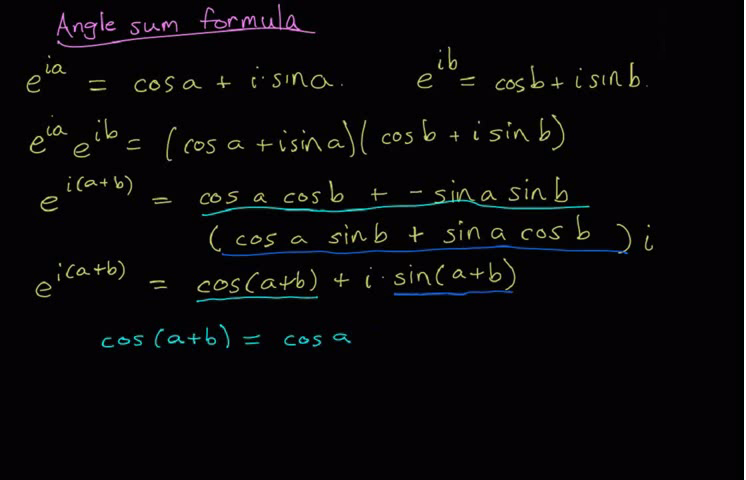 Angle sum formula
e^{ia} = cos a + i·sin a. e^{ib} = cos b + i sin b.
e^{ia} e^{ib} = (cos a + i sin a)(cos b + i sin b)
e^{i(a+b)} = cos a cos b + - sin a sin b
(cos a sin b + sin a cos b) i
e^{i(a+b)} = cos(a+b) + i · sin(a+b)
cos(a+b) = cos a